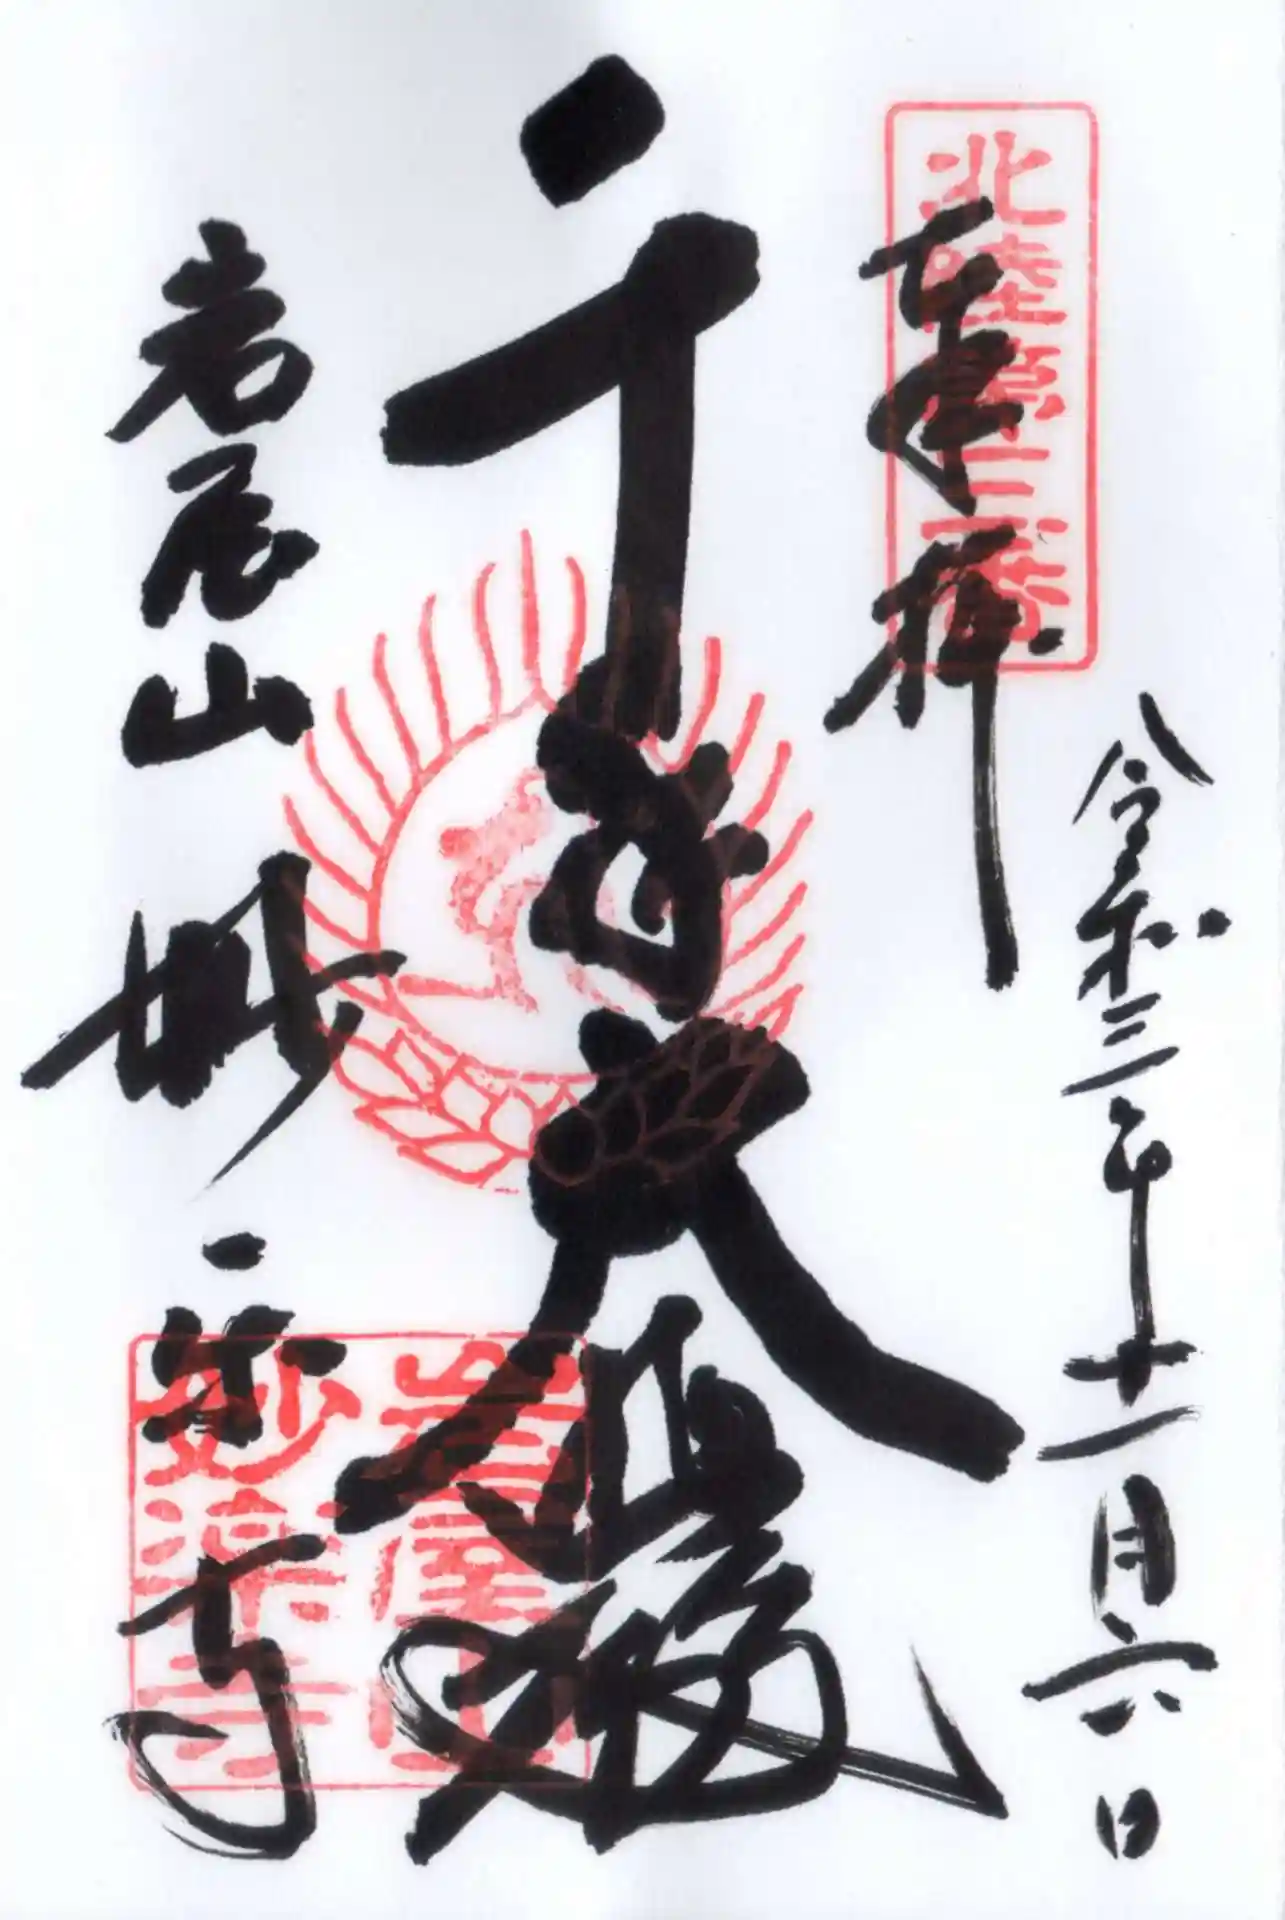 令和三年十一月六日
奉拝
北陸第三番
千手大悲殿
岩屋山 妙楽寺
岩屋山
妙楽寺